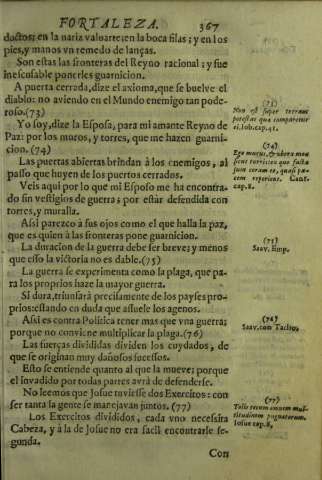 FORTALEZA. 367
doctos; en la nariz valuarte; en la boca filas; y en los
pies, y manos vn remedo de lanças.
Son estas las fronteras del Reyno racional; y fue
inescusable ponerles guarnicion.
A puerta cerrada, dize el axioma, que se buelve el
diablo: no aviendo en el Mundo enemigo tan pode-
roso. (73)
Yo soy, dize la Esposa, para mi amante Reyno de
Paz: por los muros, y torres, que me hazen guarni-
cion. (74)
Las puertas abiertas brindan à los enemigos, al
passo que huyen de los puertos cerrados.
Veis aqui por lo que mi Esposo me ha encontra-
do sin vestigios de guerra; por estàr defendida con
torres, y muralla.
Assi parezco à sus ojos como el que halla la paz,
que es quien à las fronteras pone guarnicion.
La duracion de la guerra debe ser breve; y menos
que esso la victoria no es dable. (75)
La guerra se experimenta como la plaga, que pa-
ra los proprios haze la mayor guerra.
Si dura, triunfarà precisamente de los payses pro-
prios: estando en duda que assuele los agenos.
Assi es contra Politica tener mas que vna guerra;
porque no conviene multiplicar la plaga. (76)
Las fuerças divididas dividen los cuydados, de
que se originan muy dañosos sucessos.
Esto se entiende quanto al que la mueve; porque
el invadido por todas partes avrà de defenderse.
No leemos que Josue tuviesse dos Exercitos: con
ser tanta la gente se manejavan juntos. (77)
Los Exercitos divididos, cada vno necessita
Cabeza, y à la de Josue no era facil encontrarle se-
gunda.
Con
(73)
Non est super terram
potestas quæ comparetur
ei. Iob. cap. 41.
(74)
Ego murus, & vbera mea
sicut turris: ex quo facta
sum coram eo, quasi pa-
cem reperiens. Cant.
cap. 8.
(75)
Saav. Emp.
(76)
Saav. con Tacito.
(77)
Tolle tecum omnem mul-
titudinem pugnatorum.
Iosue cap. 8.